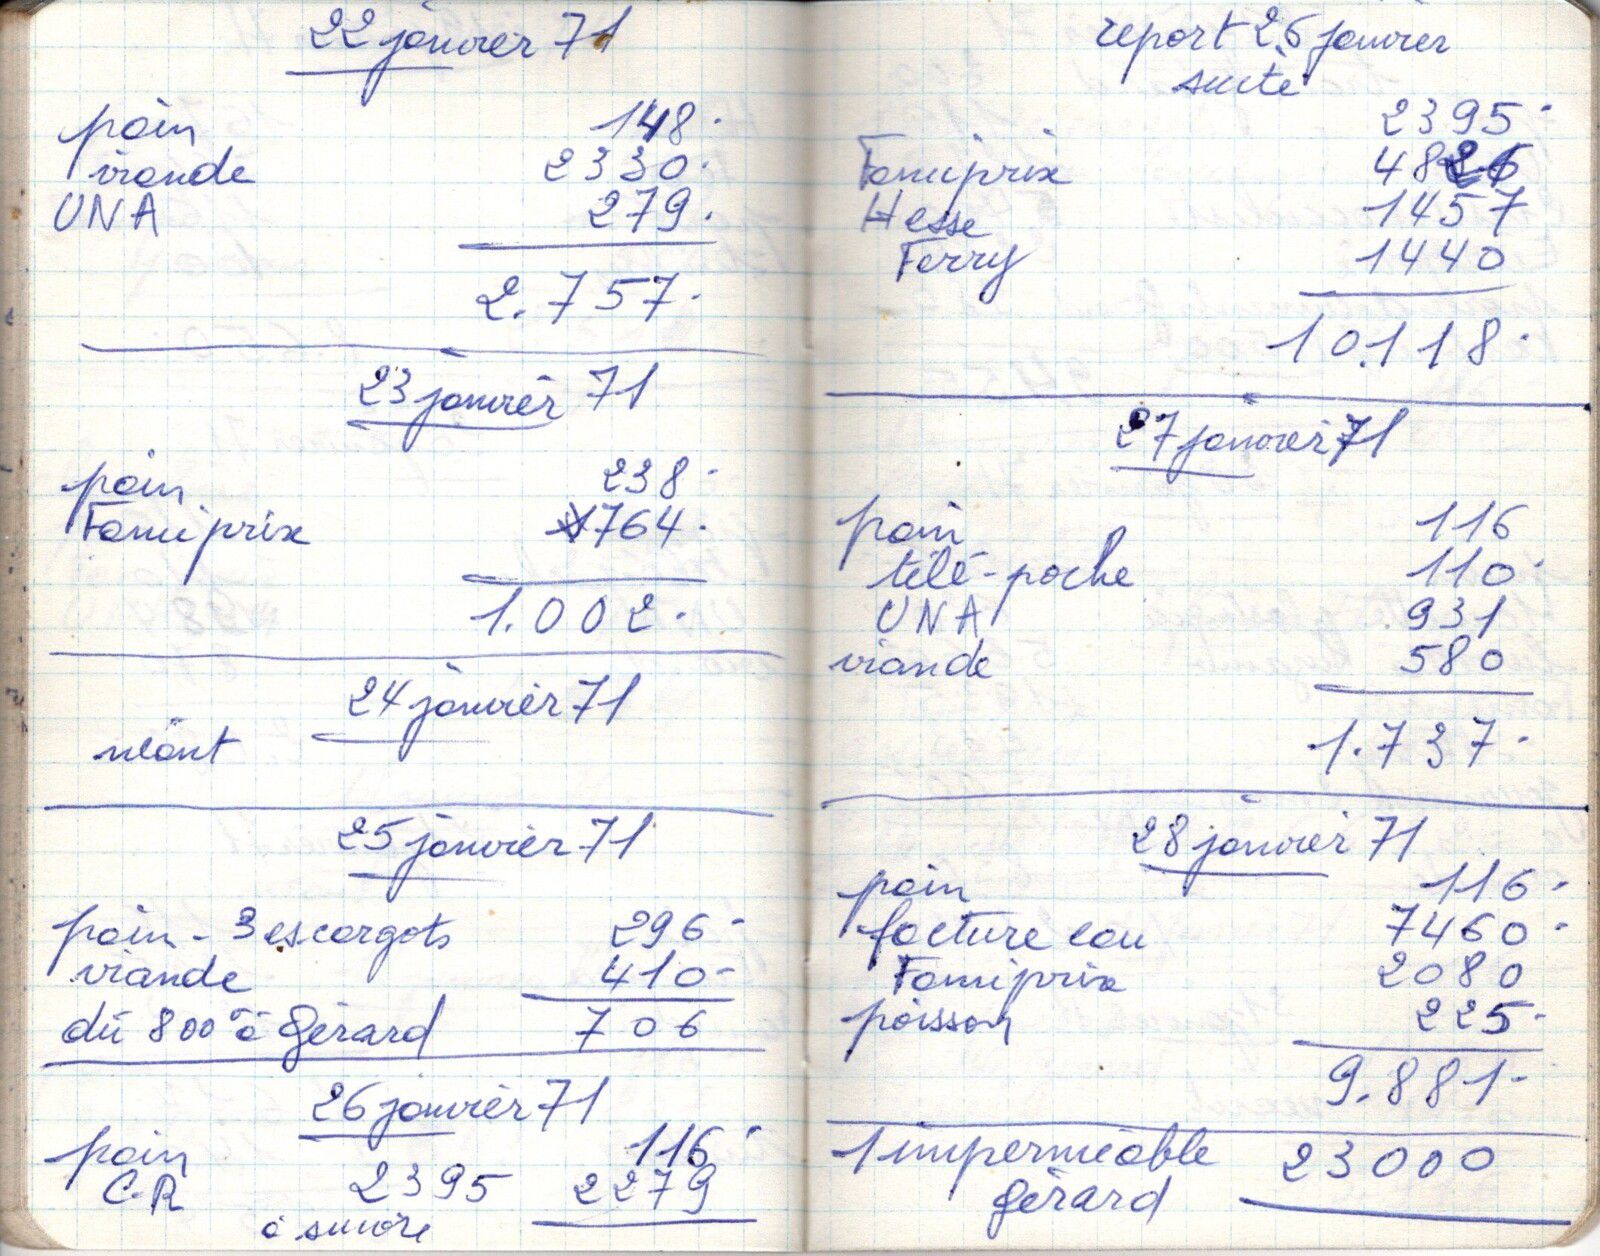 22 janvier 71
pain 148.
viande 2330.
UNA 279.
2.757.
23 janvier 71
pain 238.
Famiprix 764.
1.002.
24 janvier 71
néant
25 janvier 71
pain - 3 escargots 296-
viande 410-
dû 800 à Gérard 706
26 janvier 71
pain 116
C.R 2395 2279
à suivre
report 26 janvier
suite
2395.
Famiprix 4826
Hesse 1457
Ferry 1440
10.118.
27 janvier 71
pain 116
télé-poche 110.
UNA 931
viande 580
1.737.
28 janvier 71
pain 116.
facture eau 7460.
Famiprix 2080
poisson 225.
9.881-
1 imperméable 23000
Gérard